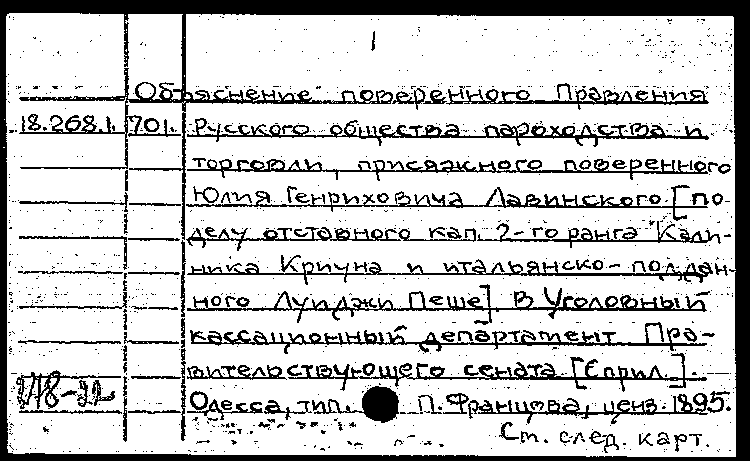 1
Объяснение поверенного Правления
18.268.1. 701. Русского общества пароходства и
торговли, присяжного поверенного
Юлия Генриховича Лавинского [по
делу отставного кап. 2-го ранга Кали-
ника Кричуна и итальянско-поддан-
ного Луиджи Пеше]. В Уголовный
кассационный департамент Пра-
вительствующего сената [С прил.].
Одесса, тип. П. Францова, ценз. 1895.
См. след. карт.